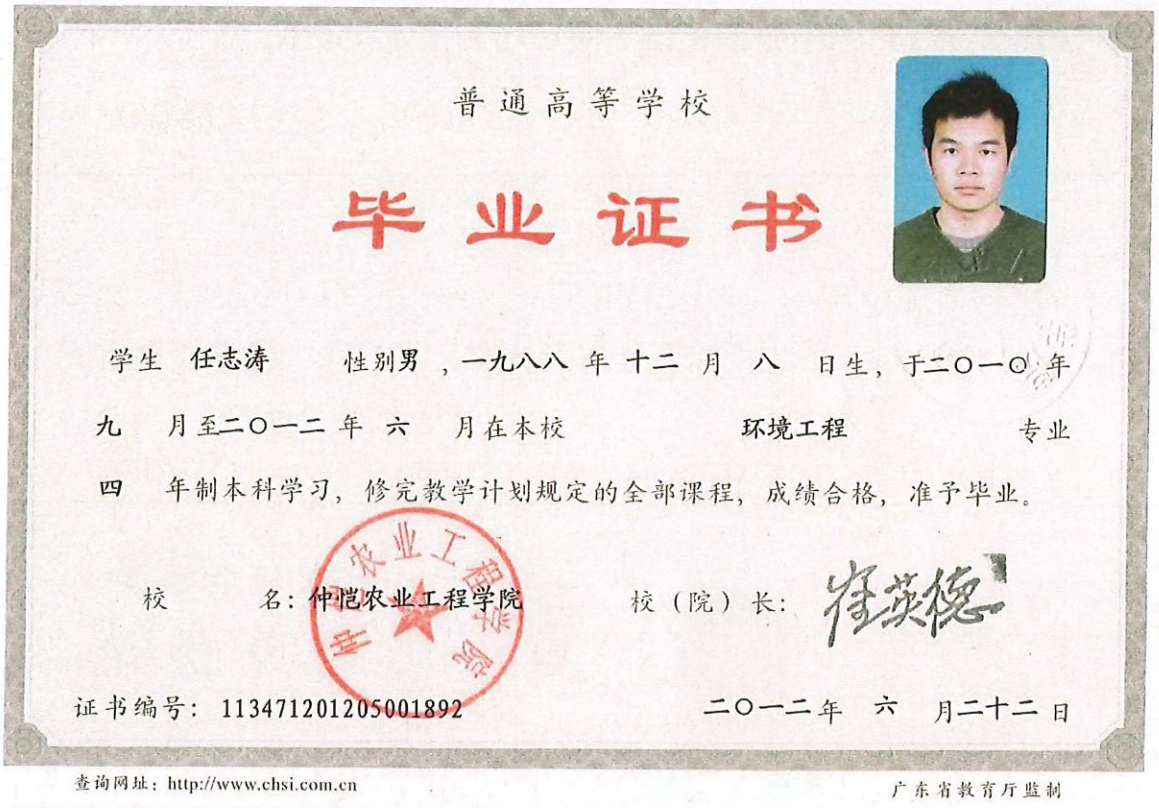 普通高等学校
毕业证书
学生 任志涛 性别男，一九八八年十二月八日生，于二〇一〇年
九月至二〇一二年六月在本校 环境工程 专业
四年制本科学习，修完教学计划规定的全部课程，成绩合格，准予毕业。
仲恺农业工程学院
校 名：仲恺农业工程学院 校（院）长：崔英德
证书编号：113471201205001892 二〇一二年六月二十二日
查询网址：http://www.chsi.com.cn 广东省教育厅监制